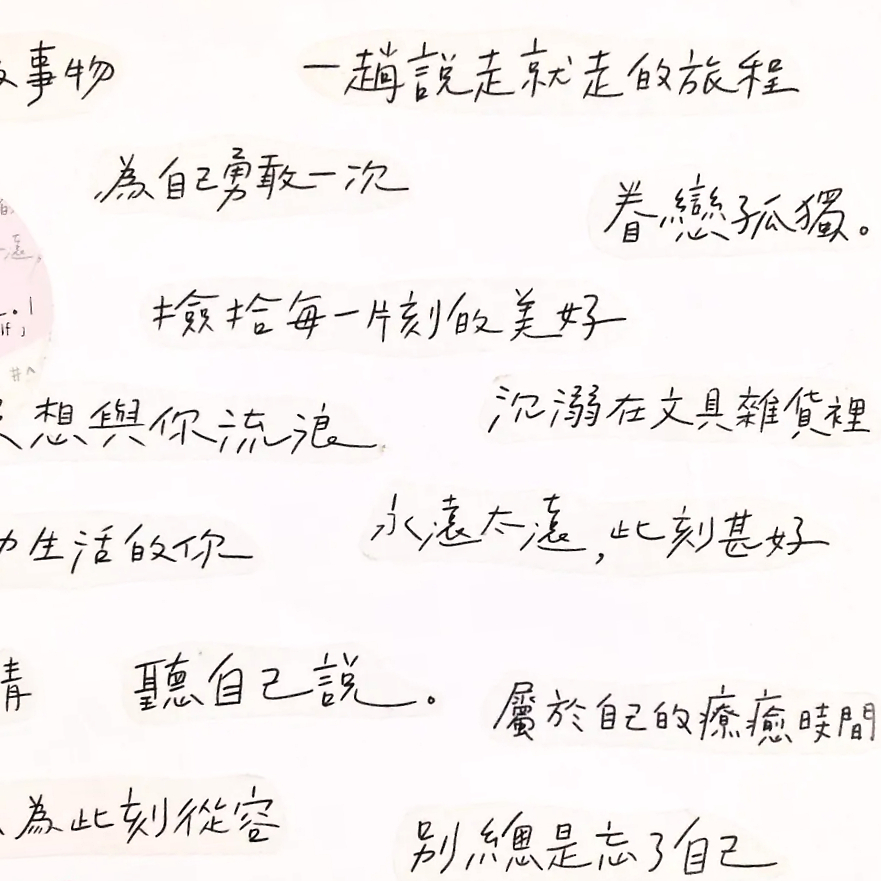 事物
一趟說走就走的旅程
為自己勇敢一次
眷戀孤獨。
撿拾每一片刻的美好
想與你流浪
沉溺在文具雜貨裡
生活的你
永遠太遠,此刻甚好
聽自己說。
屬於自己的療癒時間
為此刻從容
別總是忘了自己